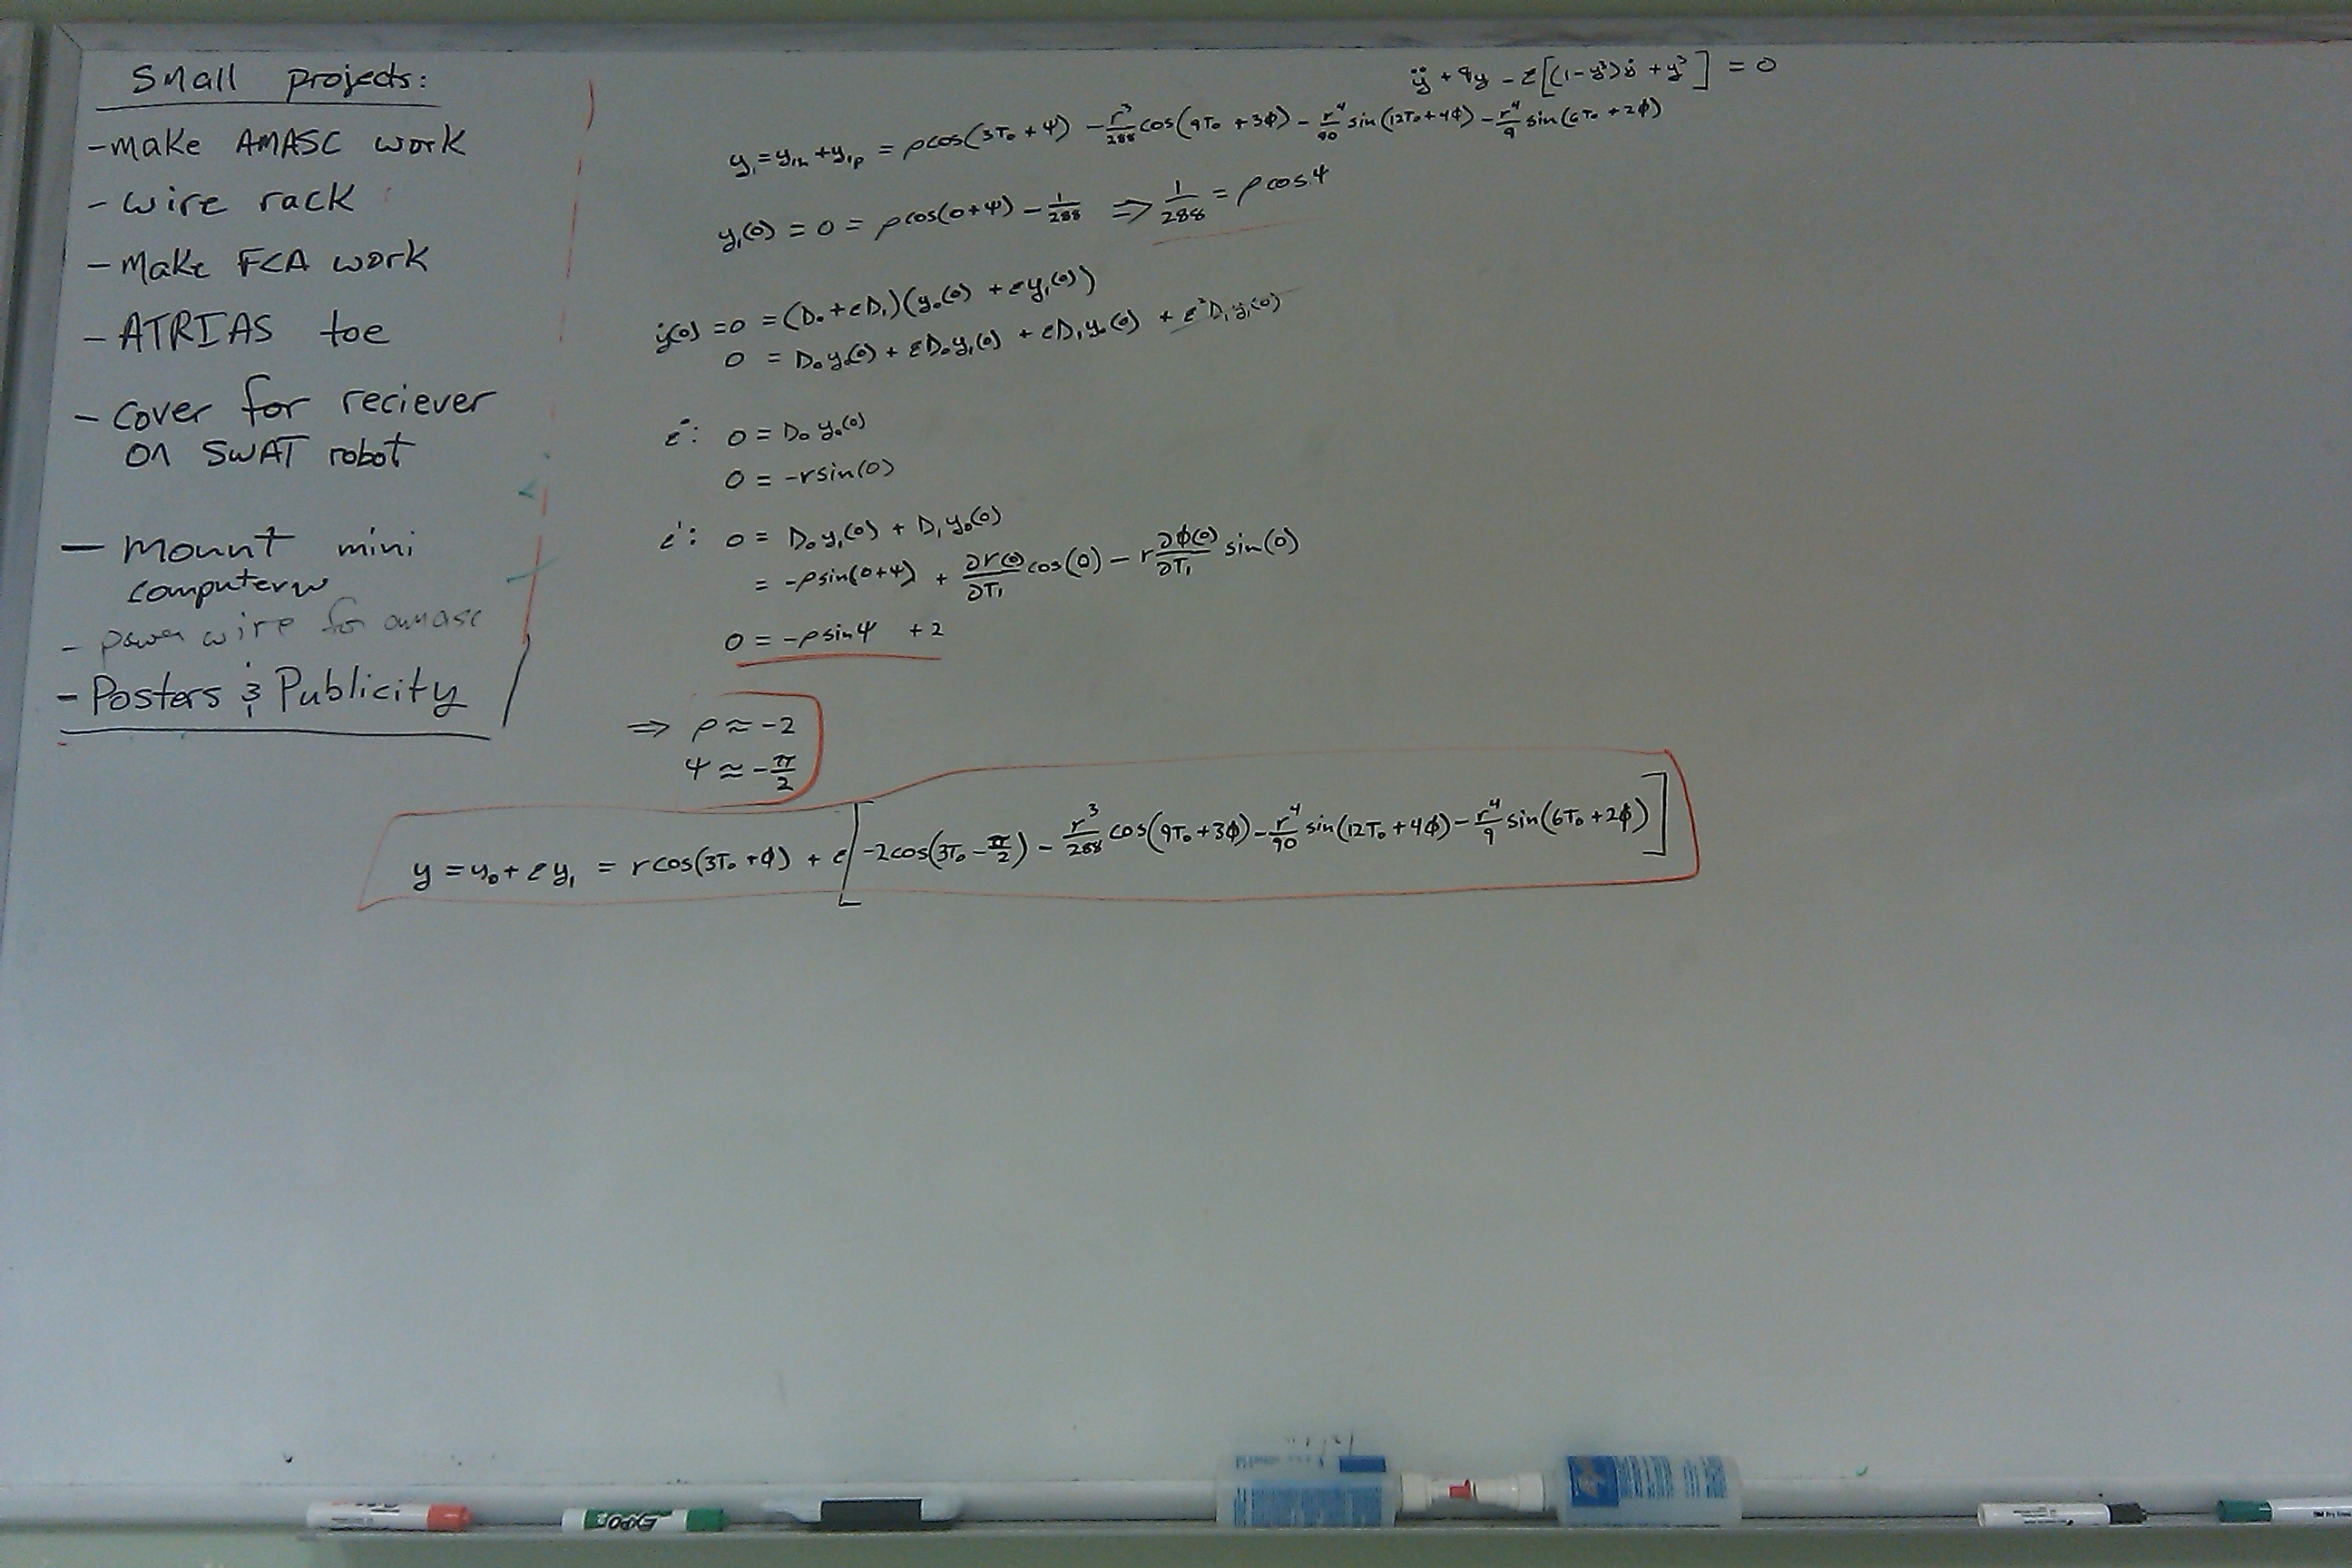 Small projects:
- make AMASC work
- wire rack
- Make FCA work
- ATRIAS toe
- cover for reciever
on SWAT robot
- mount mini
computer
- power wire for amasc
- Posters & Publicity
ÿ + 9y - ε[(1-y³)ẏ + y³] = 0
y₁ = y₁ₕ + y₁ₚ = ρcos(3T₀ + ψ) - r³/288 cos(9T₀ + 3φ) - r⁴/90 sin(12T₀ + 4φ) - r⁴/9 sin(6T₀ + 2φ)
y₁(0) = 0 = ρcos(0+ψ) - 1/288 ⇒ 1/288 = ρcosψ
ẏ(0) = 0 = (D₀ + εD₁)(y₀(0) + εy₁(0))
0 = D₀y₀(0) + εD₀y₁(0) + εD₁y₀(0) + ε²D₁y₁(0)
ε⁰: 0 = D₀ y₀(0)
0 = -rsin(0)
ε¹: 0 = D₀y₁(0) + D₁y₀(0)
= -ρsin(0+ψ) + ∂r(0)/∂T₁ cos(0) - r ∂φ(0)/∂T₁ sin(0)
0 = -ρsinψ + 2
⇒ ρ ≈ -2
ψ ≈ -π/2
y = y₀ + εy₁ = rcos(3T₀ + φ) + ε[-2cos(3T₀ - π/2) - r³/288 cos(9T₀ + 3φ) - r⁴/90 sin(12T₀ + 4φ) - r⁴/9 sin(6T₀ + 2φ)]
EXPO